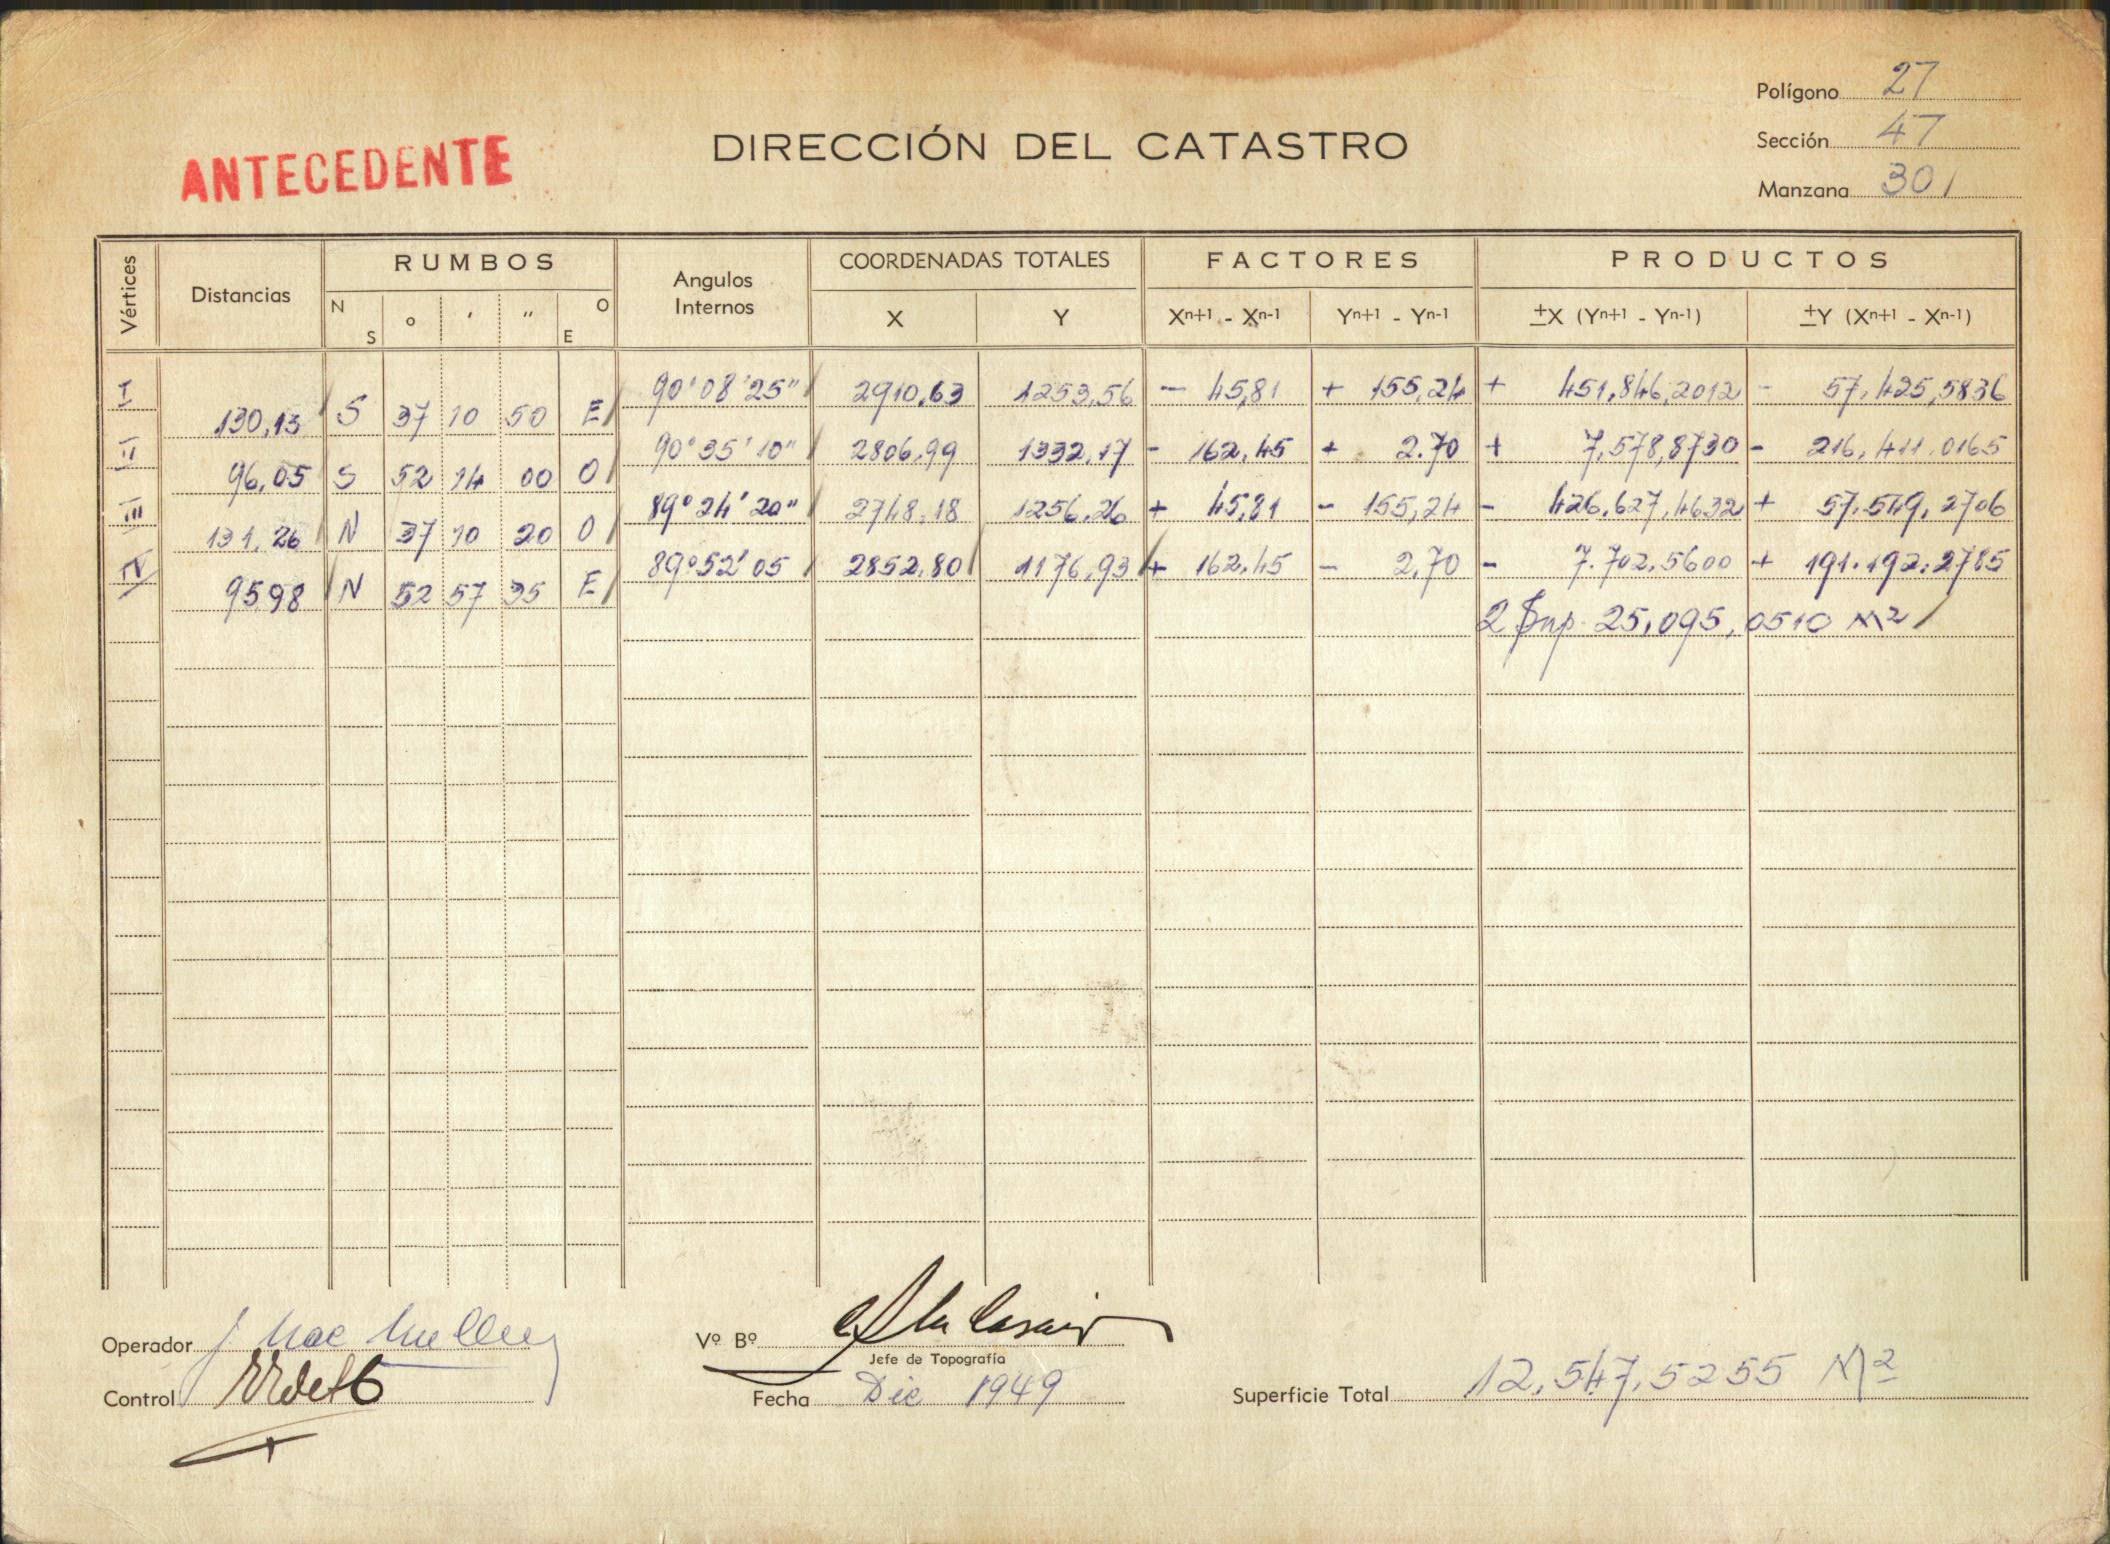 Polígono 27
ANTECEDENTE
DIRECCIÓN DEL CATASTRO
Sección 47
Manzana 301
Vértices Distancias RUMBOS Angulos Internos COORDENADAS TOTALES FACTORES PRODUCTOS
N S ° ' " O E X Y Xn+1 - Xn-1 Yn+1 - Yn-1 ±X (Yn+1 - Yn-1) ±Y (Xn+1 - Xn-1)
I 90°08'25" 2910,63 1253,56 - 45,81 + 155,24 + 451,846,2012 - 57,425,5836
130,13 S 37 10 50 E
II 90°35'10" 2806,99 1332,17 - 162,45 + 2.70 + 7,578,8730 - 216,411,0165
96,05 S 52 14 00 O
III 89°24'20" 2748,18 1256,26 + 45,81 - 155,24 - 426,627,4632 + 57.549,2706
131,26 N 37 10 20 O
IV 89°52'05 2852,80 1176,93 + 162,45 - 2,70 - 7.702,5600 + 191.192,2785
95,98 N 52 57 35 E
2 Sup. 25,095,0510 M2
Operador J. Mac
Vº Bº
Jefe de Topografía
Control
Fecha Dic 1949
Superficie Total 12,547,5255 M2